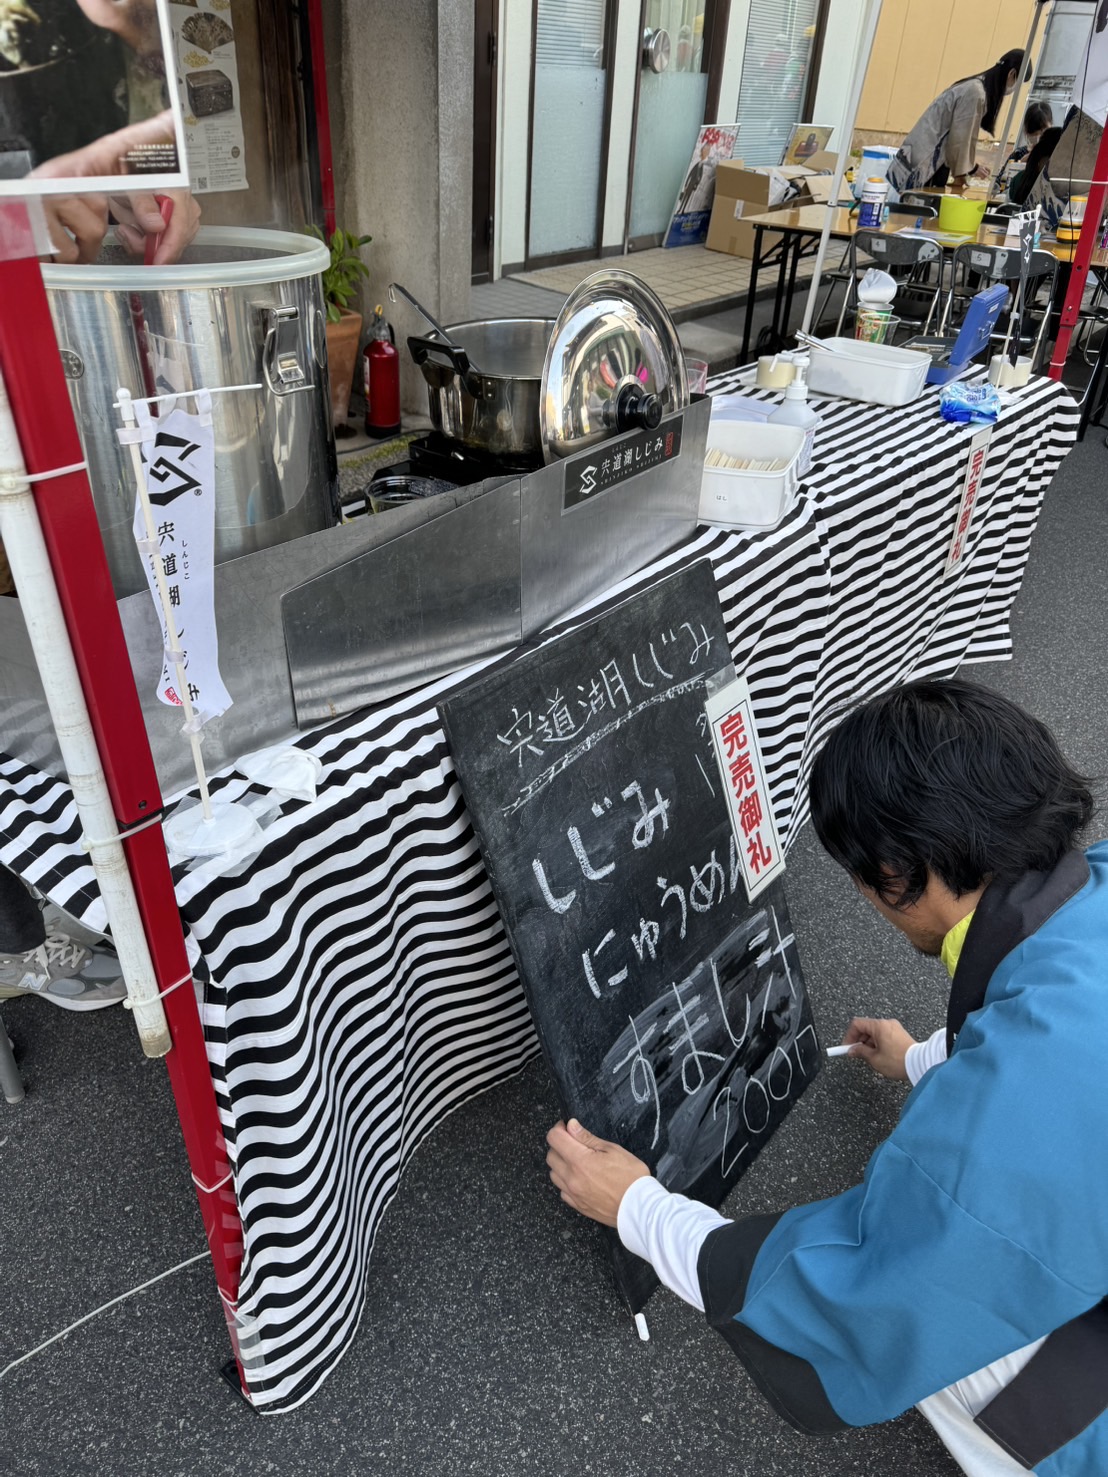 宍道湖しじみ
しんじこ
宍道湖しじみ
SHINJIKO SHIJIMI
はし
完売御礼
宍道湖しじみ
完売御礼
しじみ
にゅうめん
すまし汁
200円